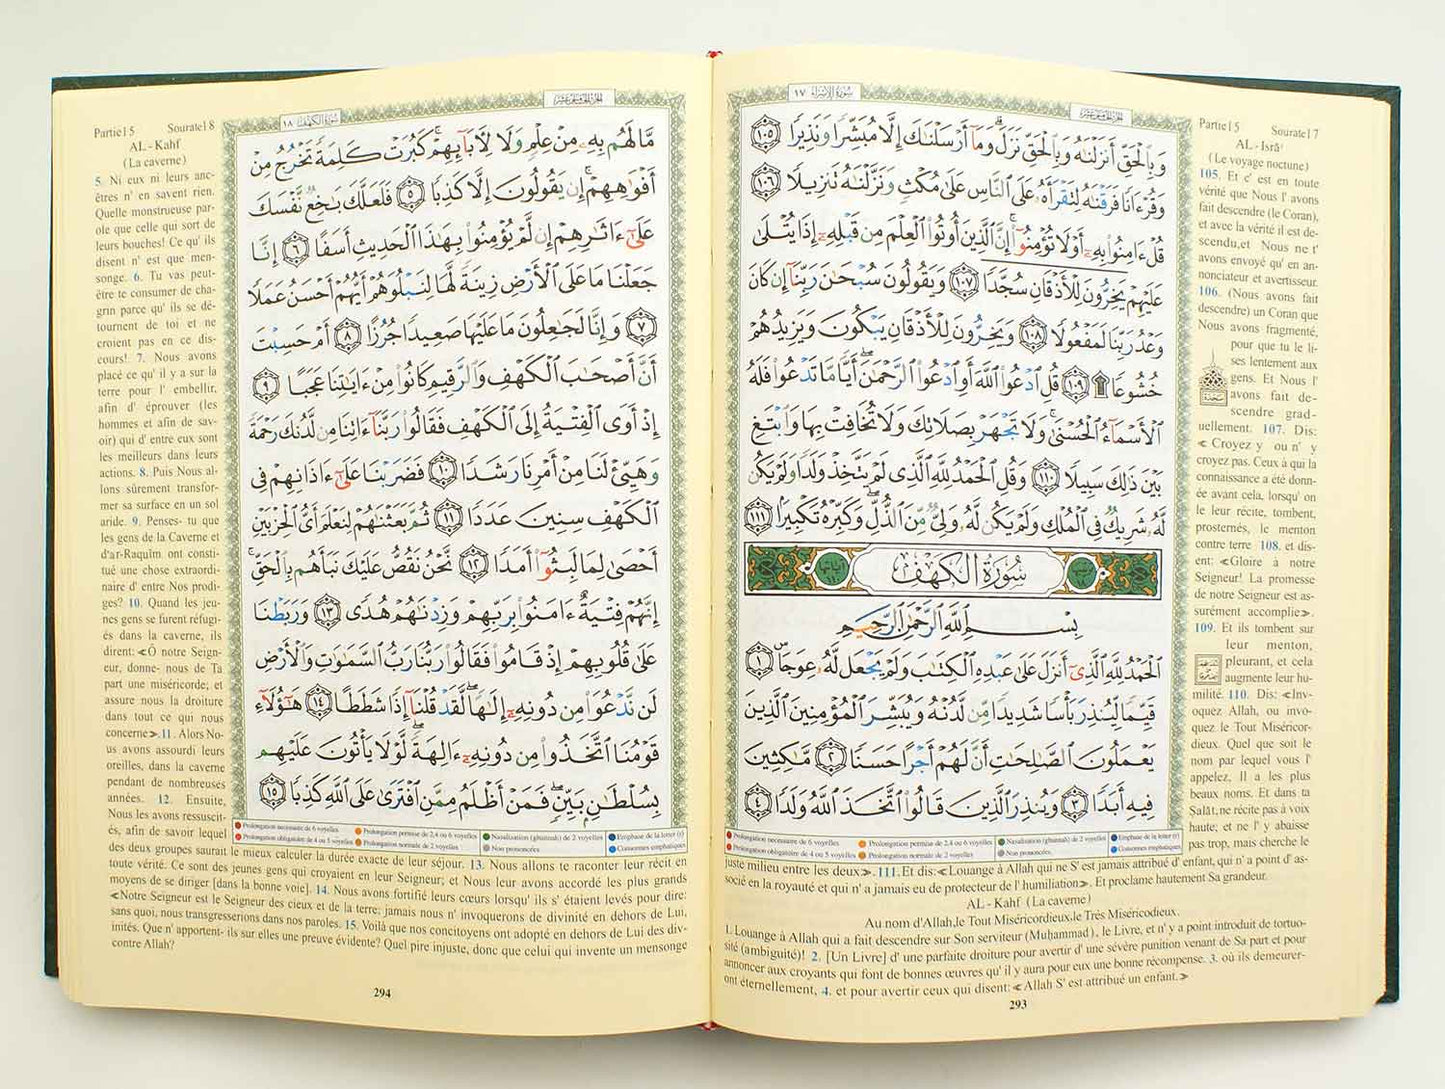 سورة الإسراء ١٧
الجزء الخامس عشر
وَبِالْحَقِّ أَنزَلْنَٰهُ وَبِالْحَقِّ نَزَلَ ۗ وَمَآ أَرْسَلْنَٰكَ إِلَّا مُبَشِّرًا وَنَذِيرًا ١٠٥
وَقُرْءَانًا فَرَقْنَٰهُ لِتَقْرَأَهُۥ عَلَى النَّاسِ عَلَىٰ مُكْثٍ وَنَزَّلْنَٰهُ تَنزِيلًا ١٠٦
قُلْ ءَامِنُوا۟ بِهِۦٓ أَوْ لَا تُؤْمِنُوٓا۟ ۚ إِنَّ الَّذِينَ أُوتُوا۟ الْعِلْمَ مِن قَبْلِهِۦٓ إِذَا يُتْلَىٰ
عَلَيْهِمْ يَخِرُّونَ لِلْأَذْقَانِ سُجَّدًا ١٠٧ وَيَقُولُونَ سُبْحَٰنَ رَبِّنَآ إِن كَانَ
وَعْدُ رَبِّنَا لَمَفْعُولًا ١٠٨ وَيَخِرُّونَ لِلْأَذْقَانِ يَبْكُونَ وَيَزِيدُهُمْ
خُشُوعًا ۩ ١٠٩ قُلِ ادْعُوا۟ اللَّهَ أَوِ ادْعُوا۟ الرَّحْمَٰنَ ۖ أَيًّا مَّا تَدْعُوا۟ فَلَهُ
الْأَسْمَآءُ الْحُسْنَىٰ ۚ وَلَا تَجْهَرْ بِصَلَاتِكَ وَلَا تُخَافِتْ بِهَا وَابْتَغِ
بَيْنَ ذَٰلِكَ سَبِيلًا ١١٠ وَقُلِ الْحَمْدُ لِلَّهِ الَّذِى لَمْ يَتَّخِذْ وَلَدًا وَلَمْ يَكُن
لَّهُۥ شَرِيكٌ فِى الْمُلْكِ وَلَمْ يَكُن لَّهُۥ وَلِىٌّ مِّنَ الذُّلِّ ۖ وَكَبِّرْهُ تَكْبِيرًۢا ١١١
سُورَةُ الكَهْفِ
بِسْمِ اللَّهِ الرَّحْمَٰنِ الرَّحِيمِ
الْحَمْدُ لِلَّهِ الَّذِىٓ أَنزَلَ عَلَىٰ عَبْدِهِ الْكِتَٰبَ وَلَمْ يَجْعَل لَّهُۥ عِوَجَا ۜ ١
قَيِّمًا لِّيُنذِرَ بَأْسًا شَدِيدًا مِّن لَّدُنْهُ وَيُبَشِّرَ الْمُؤْمِنِينَ الَّذِينَ
يَعْمَلُونَ الصَّٰلِحَٰتِ أَنَّ لَهُمْ أَجْرًا حَسَنًا ٢ مَّٰكِثِينَ
فِيهِ أَبَدًا ٣ وَيُنذِرَ الَّذِينَ قَالُوا۟ اتَّخَذَ اللَّهُ وَلَدًا ٤
Prolongation nécessaire de 6 voyelles
Prolongation permise de 2,4 ou 6 voyelles
Nasalisation (ghunnah) de 2 voyelles
Emphase de la lettre (r)
Prolongation obligatoire de 4 ou 5 voyelles
Prolongation normale de 2 voyelles
Non prononcées
Consonnes emphatiques
Partie15 Sourate17
AL - Isrâ'
( Le voyage nocturne)
105. Et c' est en toute
vérité que Nous l' avons
fait descendre (le Coran),
et avec la vérité il est de-
scendu,et Nous ne t'
avons envoyé qu' en an-
nonciateur et avertisseur.
106. (Nous avons fait
descendre) un Coran que
Nous avons fragmenté,
pour que tu le li-
ses lentement aux
gens. Et Nous l'
avons fait de-
scendre grad-
uellement. 107. Dis:
≪ Croyez y ou n' y
croyez pas. Ceux à qui la
connaissance a été donn-
ée avant cela, lorsqu' on
le leur récite, tombent,
prosternés, le menton
contre terre 108. et dis-
ent: ≪Gloire à notre
Seigneur! La promesse
de notre Seigneur est as-
surément accomplie≫.
109. Et ils tombent sur
leur menton,
pleurant, et cela
augmente leur hu-
milité. 110. Dis: ≪Inv-
oquez Allah, ou invo-
quez le Tout Miséricor-
dieux. Quel que soit le
nom par lequel vous l'
appelez, Il a les plus
beaux noms. Et dans ta
Ṣalât,ne récite pas à voix
haute; et ne l' y abaisse
pas trop, mais cherche le
juste milieu entre les deux≫. 111. Et dis:≪Louange à Allah qui ne S' est jamais attribué d' enfant, qui n' a point d' as-
socié en la royauté et qui n' a jamais eu de protecteur de l' humiliation≫. Et proclame hautement Sa grandeur.
AL - Kahf (La caverne)
Au nom d'Allah,le Tout Miséricordieux,le Très Miséricodieux.
1. Louange à Allah qui a fait descendre sur Son serviteur (Muḥammad), le Livre, et n' y a point introduit de tortuo-
sité (ambiguité)! 2. [Un Livre] d' une parfaite droiture pour avertir d' une sévère punition venant de Sa part et pour
annoncer aux croyants qui font de bonnes œuvres qu' il y aura pour eux une bonne récompense. 3. où ils demeurer-
ont éternellement, 4. et pour avertir ceux qui disent:≪ Allah S' est attribué un enfant.≫
293
الجزء الخامس عشر
سورة الكهف ١٨
مَّا لَهُم بِهِۦ مِنْ عِلْمٍ وَلَا لِـَٔابَآئِهِمْ ۚ كَبُرَتْ كَلِمَةً تَخْرُجُ مِنْ
أَفْوَٰهِهِمْ ۚ إِن يَقُولُونَ إِلَّا كَذِبًا ٥ فَلَعَلَّكَ بَٰخِعٌ نَّفْسَكَ
عَلَىٰٓ ءَاثَٰرِهِمْ إِن لَّمْ يُؤْمِنُوا۟ بِهَٰذَا الْحَدِيثِ أَسَفًا ٦ إِنَّا
جَعَلْنَا مَا عَلَى الْأَرْضِ زِينَةً لَّهَا لِنَبْلُوَهُمْ أَيُّهُمْ أَحْسَنُ عَمَلًا
٧ وَإِنَّا لَجَٰعِلُونَ مَا عَلَيْهَا صَعِيدًا جُرُزًا ٨ أَمْ حَسِبْتَ
أَنَّ أَصْحَٰبَ الْكَهْفِ وَالرَّقِيمِ كَانُوا۟ مِنْ ءَايَٰتِنَا عَجَبًا ٩
إِذْ أَوَى الْفِتْيَةُ إِلَى الْكَهْفِ فَقَالُوا۟ رَبَّنَآ ءَاتِنَا مِن لَّدُنكَ رَحْمَةً
وَهَيِّئْ لَنَا مِنْ أَمْرِنَا رَشَدًا ١٠ فَضَرَبْنَا عَلَىٰٓ ءَاذَانِهِمْ فِى
الْكَهْفِ سِنِينَ عَدَدًا ١١ ثُمَّ بَعَثْنَٰهُمْ لِنَعْلَمَ أَىُّ الْحِزْبَيْنِ
أَحْصَىٰ لِمَا لَبِثُوٓا۟ أَمَدًا ١٢ نَّحْنُ نَقُصُّ عَلَيْكَ نَبَأَهُم بِالْحَقِّ ۚ
إِنَّهُمْ فِتْيَةٌ ءَامَنُوا۟ بِرَبِّهِمْ وَزِدْنَٰهُمْ هُدًى ١٣ وَرَبَطْنَا
عَلَىٰ قُلُوبِهِمْ إِذْ قَامُوا۟ فَقَالُوا۟ رَبُّنَا رَبُّ السَّمَٰوَٰتِ وَالْأَرْضِ
لَن نَّدْعُوَا۟ مِن دُونِهِۦٓ إِلَٰهًا ۖ لَّقَدْ قُلْنَآ إِذًا شَطَطًا ١٤ هَٰٓؤُلَآءِ
قَوْمُنَا اتَّخَذُوا۟ مِن دُونِهِۦٓ ءَالِهَةً ۖ لَّوْلَا يَأْتُونَ عَلَيْهِم
بِسُلْطَٰنٍۭ بَيِّنٍ ۖ فَمَنْ أَظْلَمُ مِمَّنِ افْتَرَىٰ عَلَى اللَّهِ كَذِبًا ١٥
Prolongation nécessaire de 6 voyelles
Prolongation permise de 2,4 ou 6 voyelles
Nasalisation (ghunnah) de 2 voyelles
Emphase de la lettre (r)
Prolongation obligatoire de 4 ou 5 voyelles
Prolongation normale de 2 voyelles
Non prononcées
Consonnes emphatiques
Partie15 Sourate18
AL - Kahf
(La caverne)
5. Ni eux ni leurs anc-
êtres n' en savent rien.
Quelle monstrueuse par-
ole que celle qui sort de
leurs bouches! Ce qu' ils
disent n' est que men-
songe. 6. Tu vas peut-
être te consumer de cha-
grin parce qu' ils se dé-
tournent de toi et ne
croient pas en ce dis-
cours! 7. Nous avons
placé ce qu' il y a sur la
terre pour l' embellir,
afin d' éprouver (les
hommes et afin de sav-
oir) qui d' entre eux sont
les meilleurs dans leurs
actions. 8. Puis Nous al-
lons sûrement transfor-
mer sa surface en un sol
aride. 9. Penses- tu que
les gens de la Caverne et
d'ar-Raquîm ont consti-
tué une chose extraordi-
naire d' entre Nos prodi-
ges? 10. Quand les jeu-
nes gens se furent réfugi-
és dans la caverne, ils
dirent: ≪Ô notre Seign-
eur, donne- nous de Ta
part une miséricorde; et
assure nous la droiture
dans tout ce qui nous
concerne≫.11. Alors No-
us avons assourdi leurs
oreilles, dans la caverne
pendant de nombreuses
années. 12. Ensuite,
Nous les avons ressuscit-
és, afin de savoir lequel
des deux groupes saurait le mieux calculer la durée exacte de leur séjour. 13. Nous allons te raconter leur récit en
toute vérité. Ce sont des jeunes gens qui croyaient en leur Seigneur; et Nous leur avons accordé les plus grands
moyens de se diriger [dans la bonne voie]. 14. Nous avons fortifié leurs cœurs lorsqu' ils s' étaient levés pour dire:
≪Notre Seigneur est le Seigneur des cieux et de la terre: jamais nous n' invoquerons de divinité en dehors de Lui,
sans quoi, nous transgresserions dans nos paroles. 15. Voilà que nos concitoyens ont adopté en dehors de Lui des div-
inités. Que n' apportent- ils sur elles une preuve évidente? Quel pire injuste, donc que celui qui invente un mensonge
contre Allah?
294